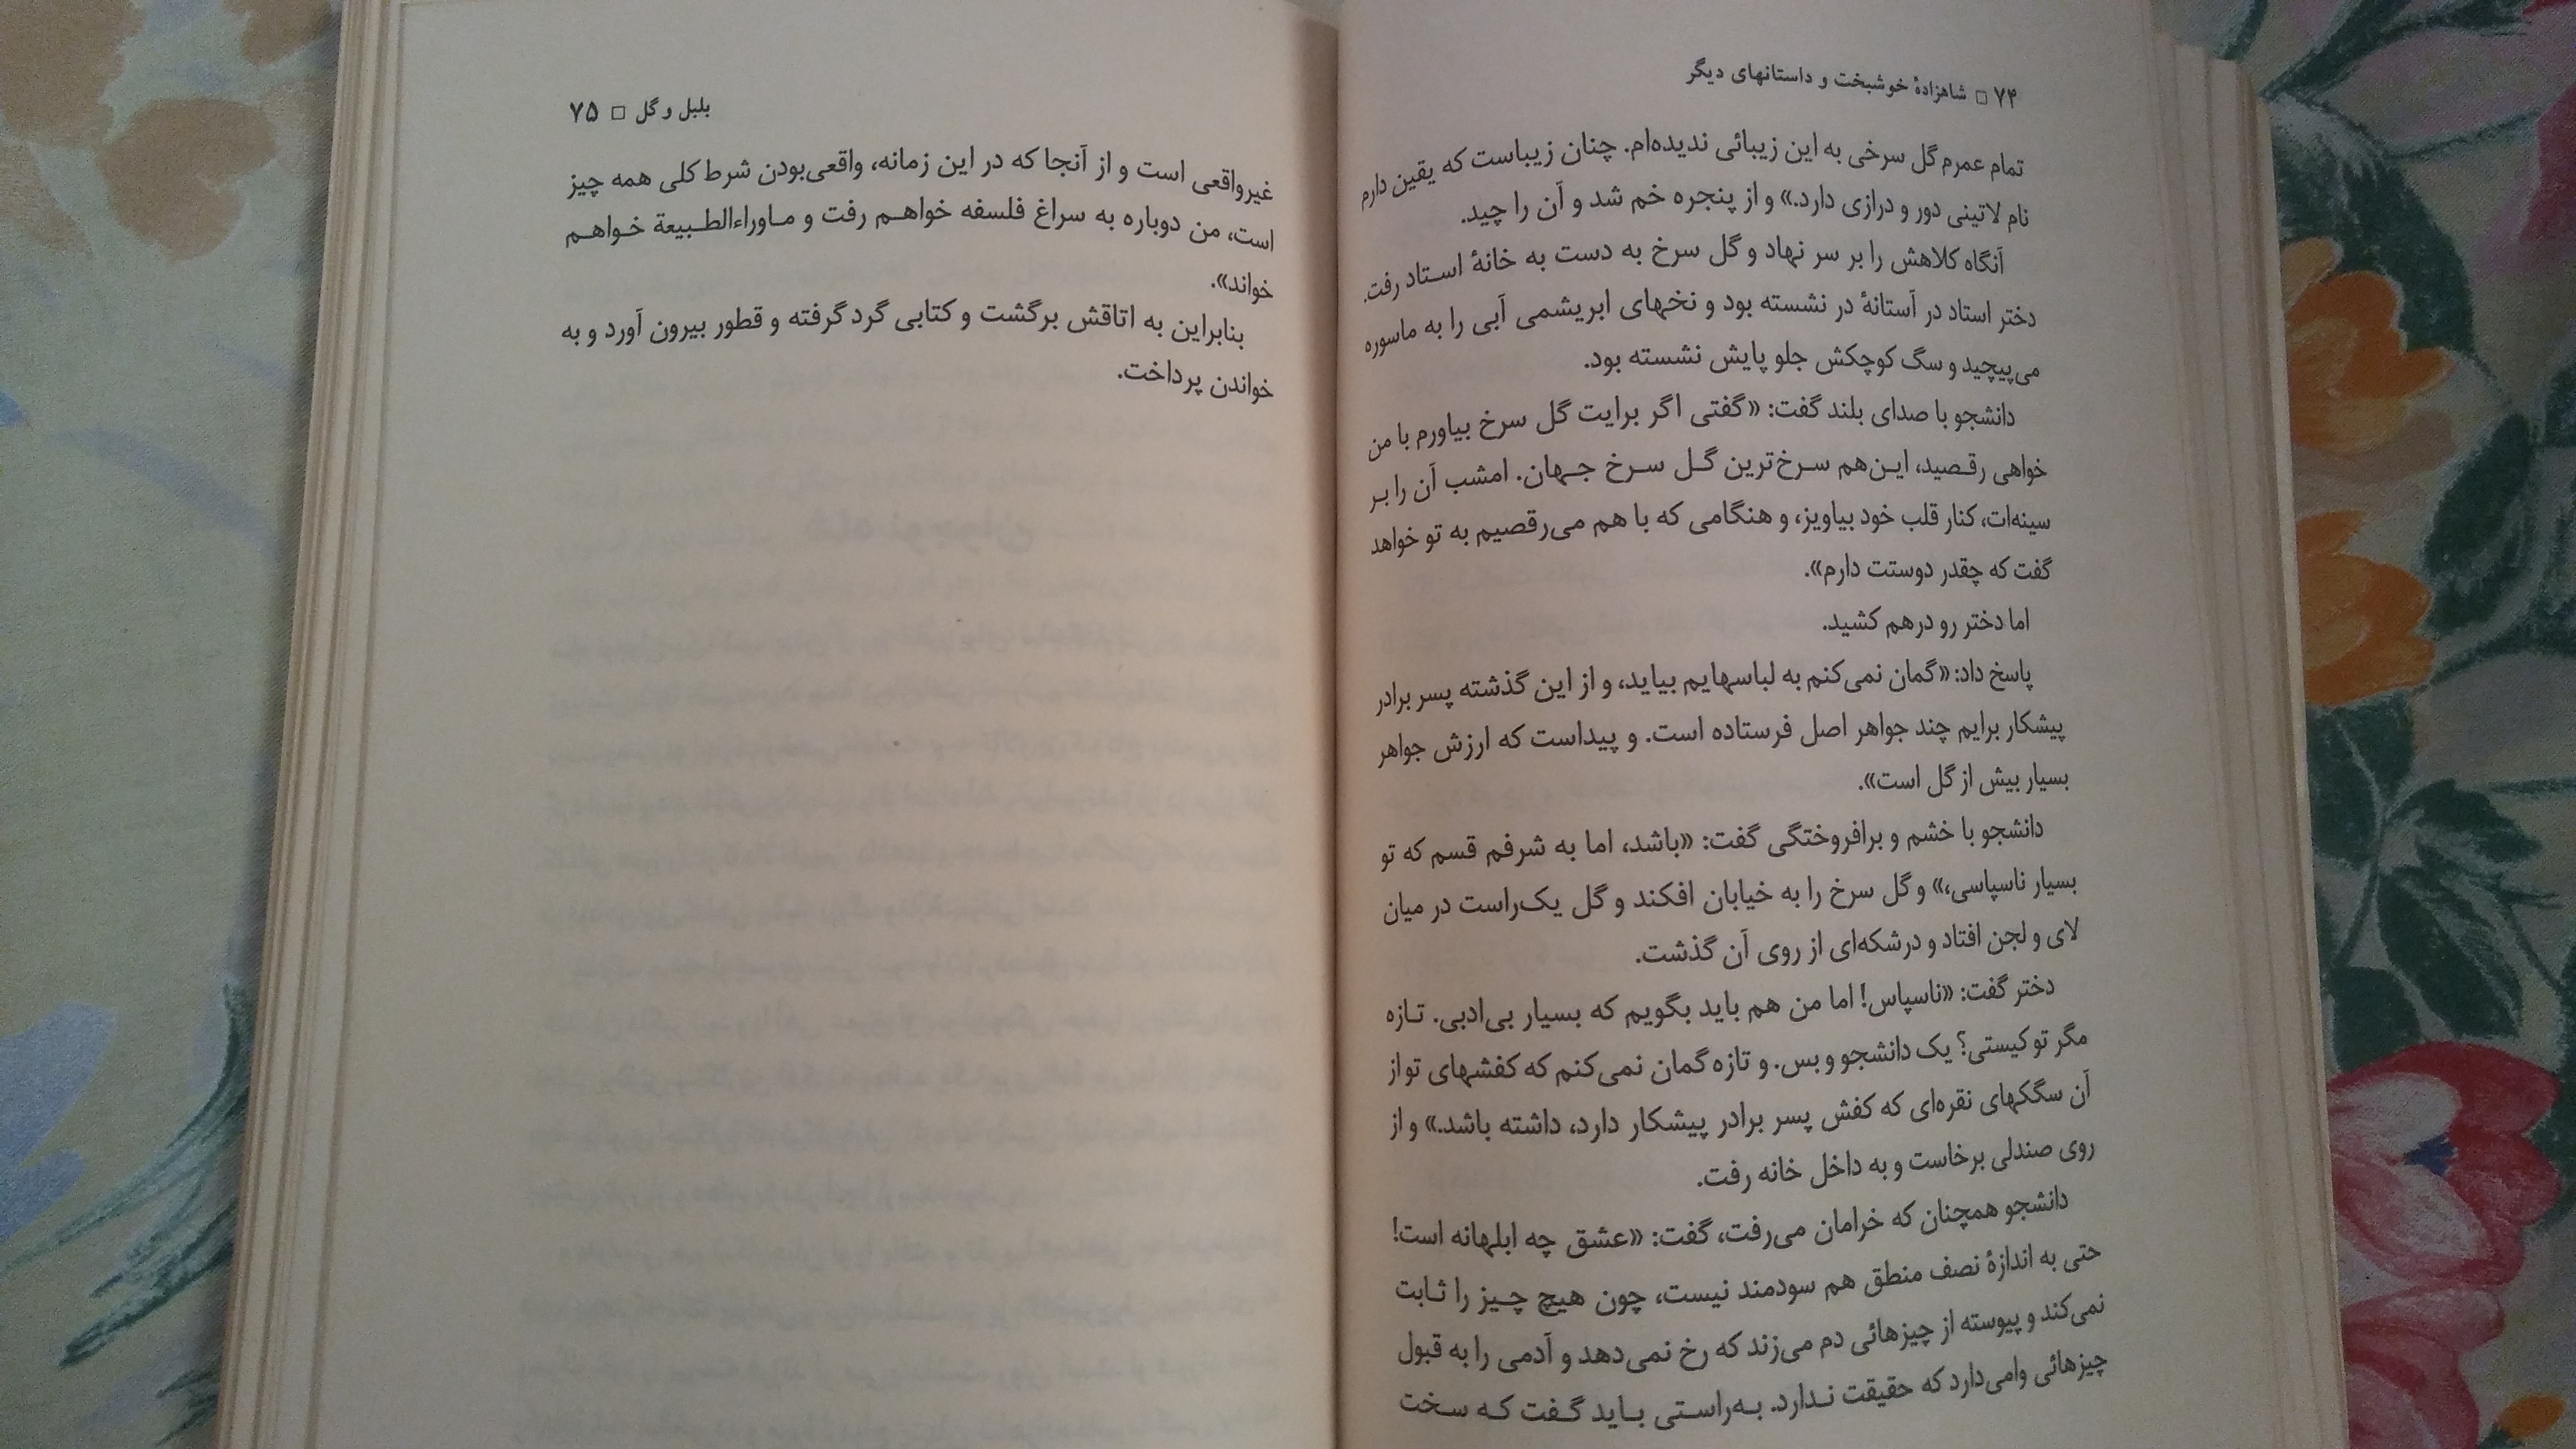 ۷۴ □ شاهزادهٔ خوشبخت و داستانهای دیگر
تمام عمرم گل سرخی به این زیبائی ندیده‌ام. چنان زیباست که یقین دارم
نام لاتینی دور و درازی دارد.» و از پنجره خم شد و آن را چید.
آنگاه کلاهش را بر سر نهاد و گل سرخ به دست به خانهٔ استاد رفت.
دختر استاد در آستانهٔ در نشسته بود و نخهای ابریشمی آبی را به ماسوره
می‌پیچید و سگ کوچکش جلو پایش نشسته بود.
دانشجو با صدای بلند گفت: «گفتی اگر برایت گل سرخ بیاورم با من
خواهی رقصید، این‌هم سرخ‌ترین گل سرخ جهان. امشب آن را بر
سینه‌ات، کنار قلب خود بیاویز، و هنگامی که با هم می‌رقصیم به تو خواهد
گفت که چقدر دوستت دارم».
اما دختر رو درهم کشید.
پاسخ داد: «گمان نمی‌کنم به لباسهایم بیاید، و از این گذشته پسر برادر
پیشکار برایم چند جواهر اصل فرستاده است. و پیداست که ارزش جواهر
بسیار بیش از گل است».
دانشجو با خشم و برافروختگی گفت: «باشد، اما به شرفم قسم که تو
بسیار ناسپاسی،» و گل سرخ را به خیابان افکند و گل یک‌راست در میان
لای و لجن افتاد و درشکه‌ای از روی آن گذشت.
دختر گفت: «ناسپاس! اما من هم باید بگویم که بسیار بی‌ادبی. تازه
مگر تو کیستی؟ یک دانشجو و بس. و تازه گمان نمی‌کنم که کفشهای تو از
آن سگکهای نقره‌ای که کفش پسر برادر پیشکار دارد، داشته باشد.» و از
روی صندلی برخاست و به داخل خانه رفت.
دانشجو همچنان که خرامان می‌رفت، گفت: «عشق چه ابلهانه است!
حتی به اندازهٔ نصف منطق هم سودمند نیست، چون هیچ چیز را ثابت
نمی‌کند و پیوسته از چیزهائی دم می‌زند که رخ نمی‌دهد و آدمی را به قبول
چیزهائی وامی‌دارد که حقیقت ندارد. به‌راستی باید گفت که سخت
بلبل و گل □ ۷۵
غیرواقعی است و از آنجا که در این زمانه، واقعی‌بودن شرط کلی همه چیز
است، من دوباره به سراغ فلسفه خواهم رفت و ماوراءالطبیعة خواهم
خواند».
بنابراین به اتاقش برگشت و کتابی گرد گرفته و قطور بیرون آورد و به
خواندن پرداخت.